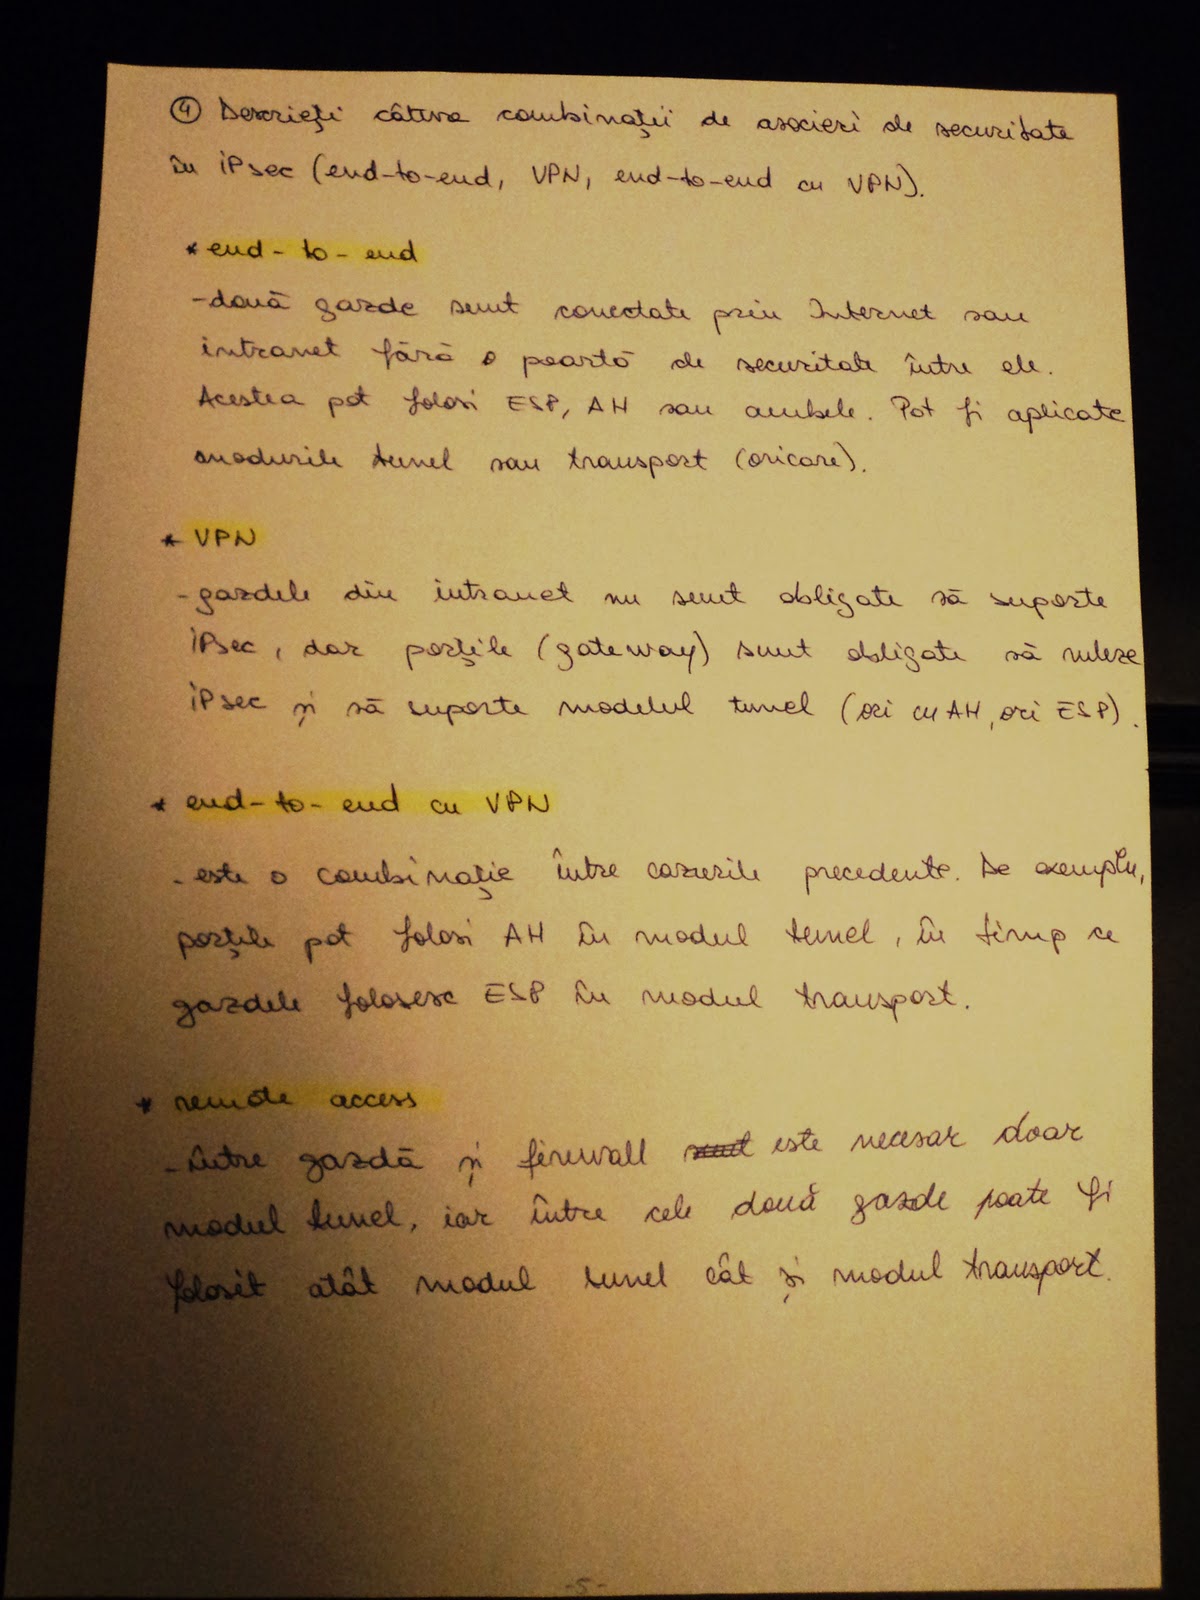 ④ Descrieți câteva combinații de asocieri de securitate
în iPsec (end-to-end, VPN, end-to-end cu VPN).
* end-to-end
- două gazde sunt conectate prin Internet sau
intranet fără o poartă de securitate între ele.
Acestea pot folosi ESP, AH sau ambele. Pot fi aplicate
modurile tunel sau transport (oricare).
* VPN
- gazdele din intranet nu sunt obligate să suporte
iPsec, dar porțile (gateway) sunt obligate să ruleze
iPsec și să suporte modelul tunel (ori cu AH, ori ESP).
* end-to-end cu VPN
- este o combinație între cazurile precedente. De exemplu,
porțile pot folosi AH în modul tunel, în timp ce
gazdele folosesc ESP în modul transport.
* remote access
- între gazdă și firewall sunt este necesar doar
modul tunel, iar între cele două gazde poate fi
folosit atât modul tunel cât și modul transport.
-5-